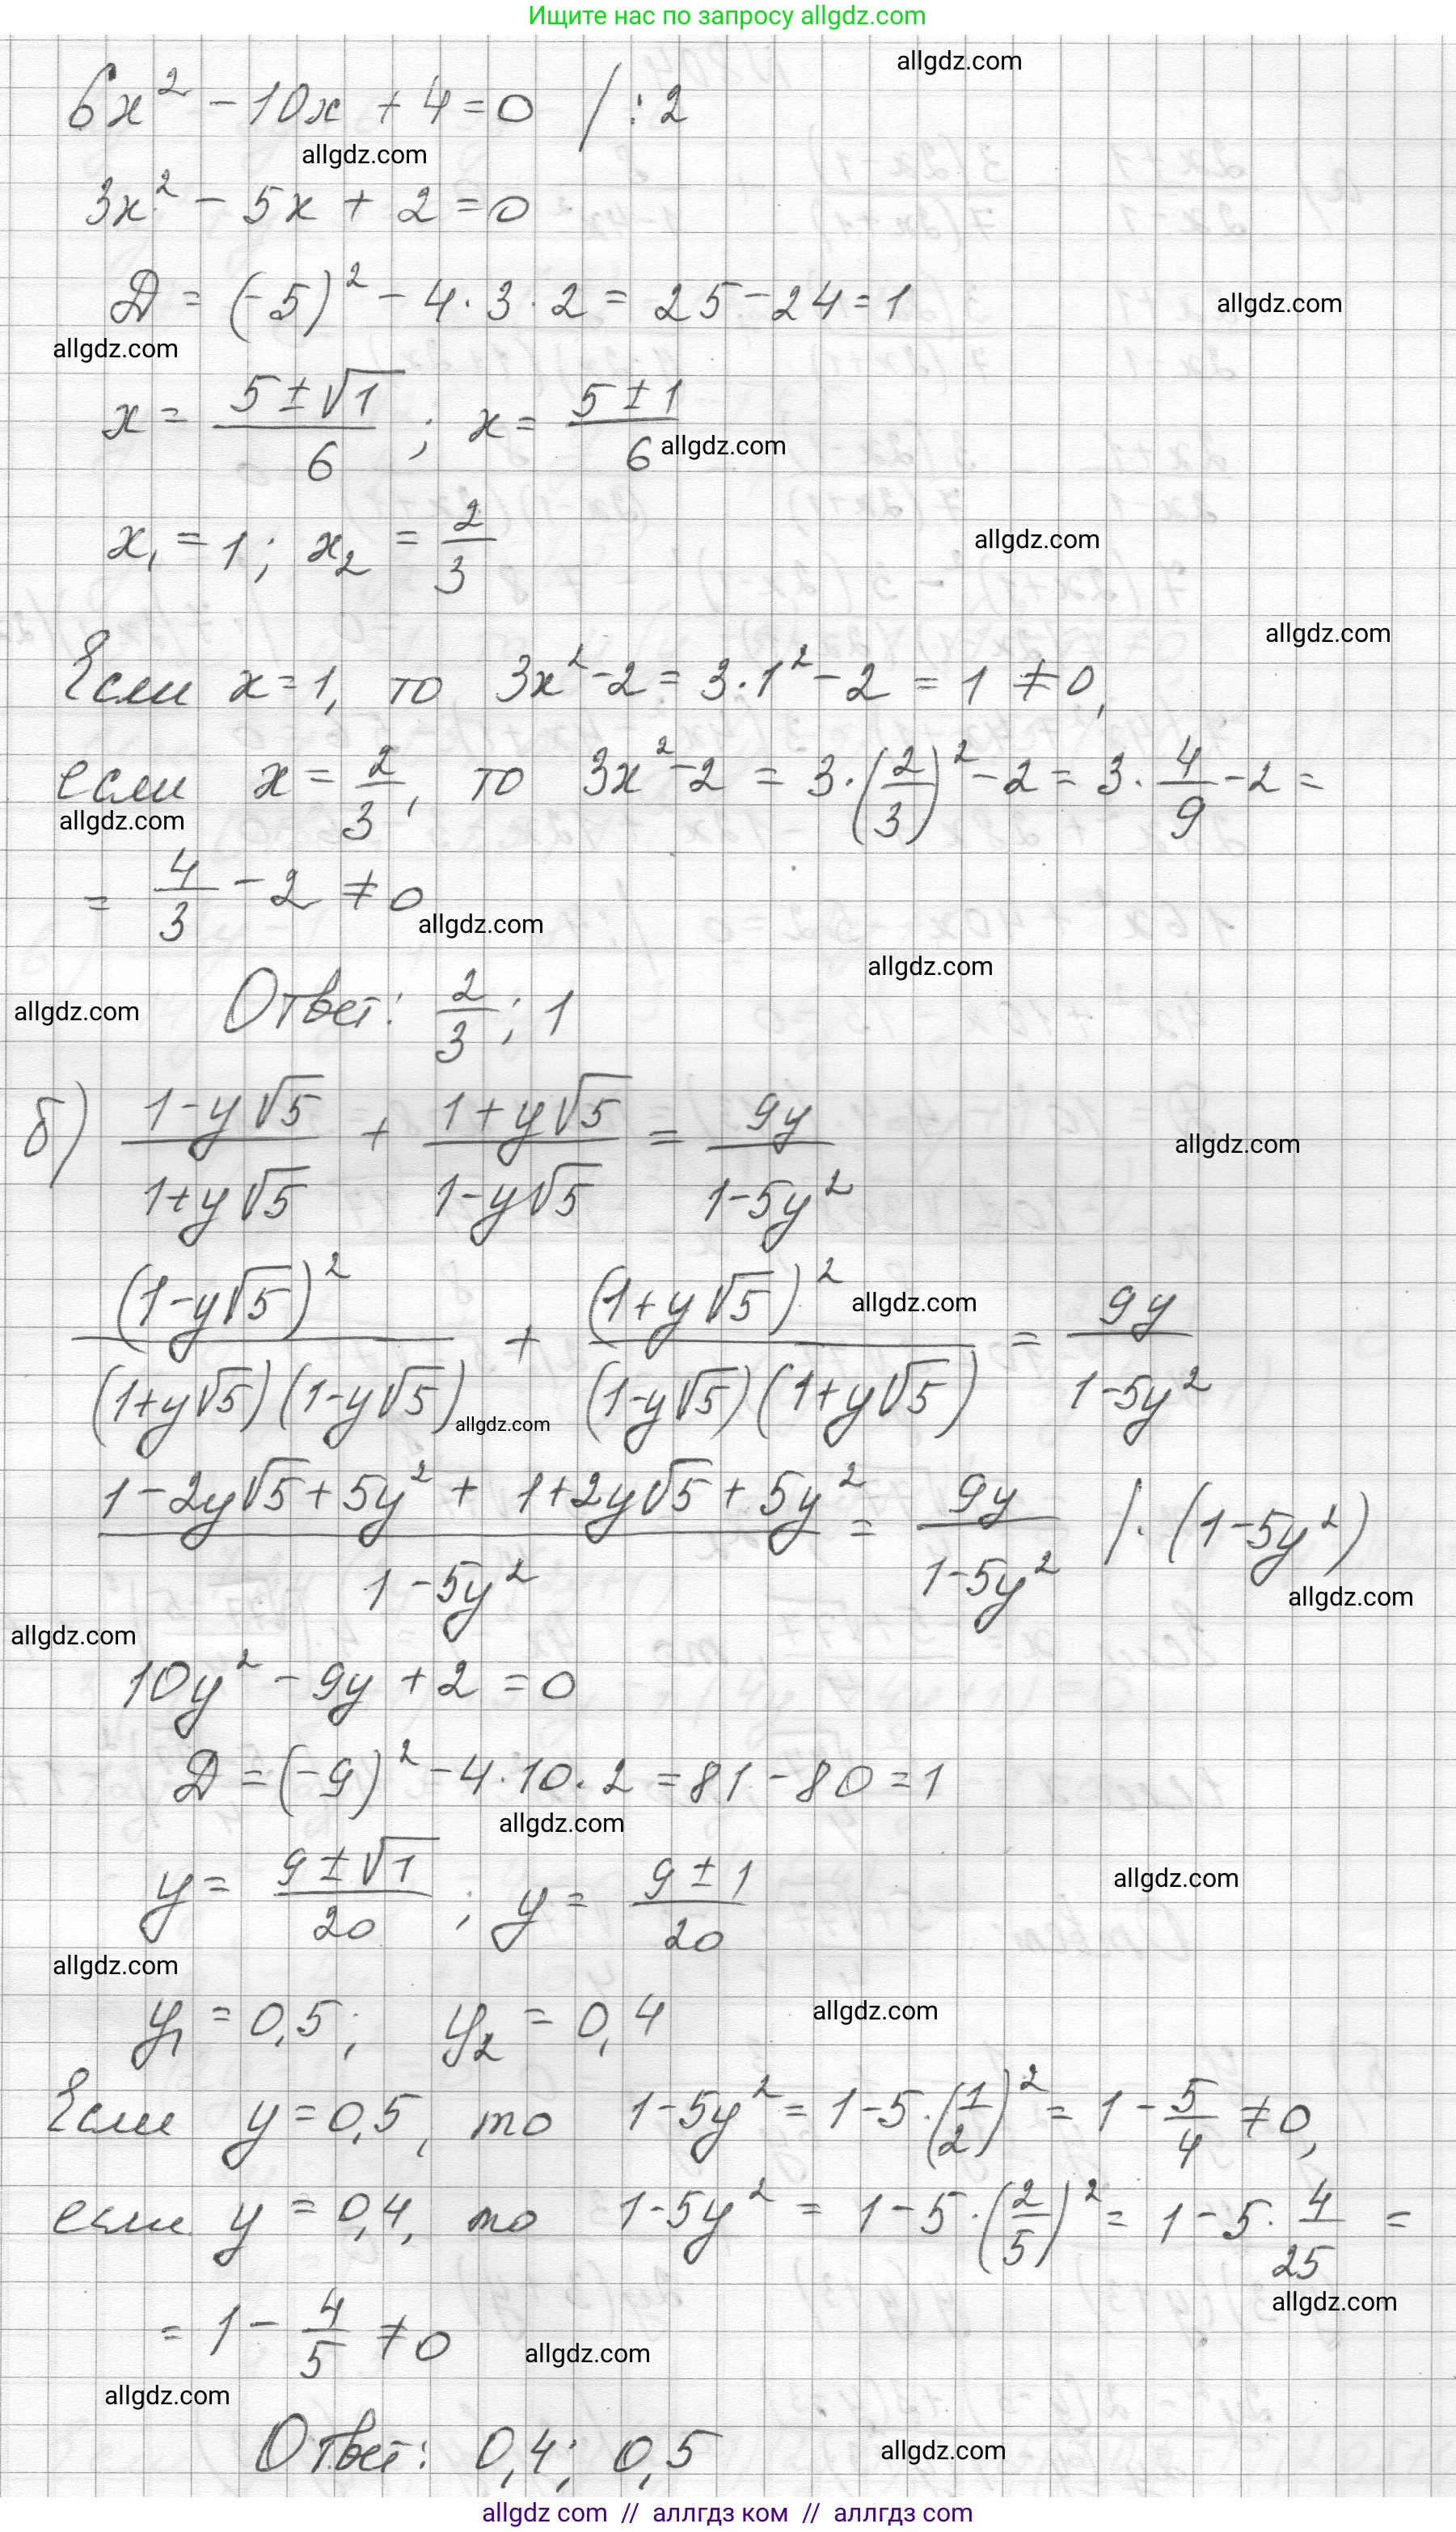 Ищите нас по запросу allgdz.com
allgdz.com
6x² - 10x + 4 = 0 / : 2
allgdz.com
3x² - 5x + 2 = 0
Д = (-5)² - 4 · 3 · 2 = 25 - 24 = 1
allgdz.com
allgdz.com
x = (5 ± √1)/6 ; x = (5 ± 1)/6
allgdz.com
x₁ = 1; x₂ = 2/3
allgdz.com
allgdz.com
Если x = 1, то 3x² - 2 = 3 · 1² - 2 = 1 ≠ 0,
если x = 2/3, то 3x² - 2 = 3 · (2/3)² - 2 = 3 · 4/9 - 2 =
allgdz.com
= 4/3 - 2 ≠ 0
allgdz.com
allgdz.com
allgdz.com
Ответ: 2/3 ; 1
б) (1 - y√5)/(1 + y√5) + (1 + y√5)/(1 - y√5) = 9y/(1 - 5y²)
allgdz.com
(1 - y√5)²/((1 + y√5)(1 - y√5)) + (1 + y√5)²/((1 - y√5)(1 + y√5)) = 9y/(1 - 5y²)
allgdz.com
allgdz.com
(1 - 2y√5 + 5y² + 1 + 2y√5 + 5y²)/(1 - 5y²) = 9y/(1 - 5y²) / · (1 - 5y²)
allgdz.com
allgdz.com
10y² - 9y + 2 = 0
Д = (-9)² - 4 · 10 · 2 = 81 - 80 = 1
allgdz.com
y = (9 ± √1)/20 ; y = (9 ± 1)/20
allgdz.com
allgdz.com
y₁ = 0,5; y₂ = 0,4
allgdz.com
Если y = 0,5, то 1 - 5y² = 1 - 5 · (1/2)² = 1 - 5/4 ≠ 0,
если y = 0,4, то 1 - 5y² = 1 - 5 · (2/5)² = 1 - 5 · 4/25 =
allgdz.com
= 1 - 4/5 ≠ 0
allgdz.com
allgdz.com
Ответ: 0,4; 0,5
allgdz.com
allgdz com // аллгдз ком // allgdz.com